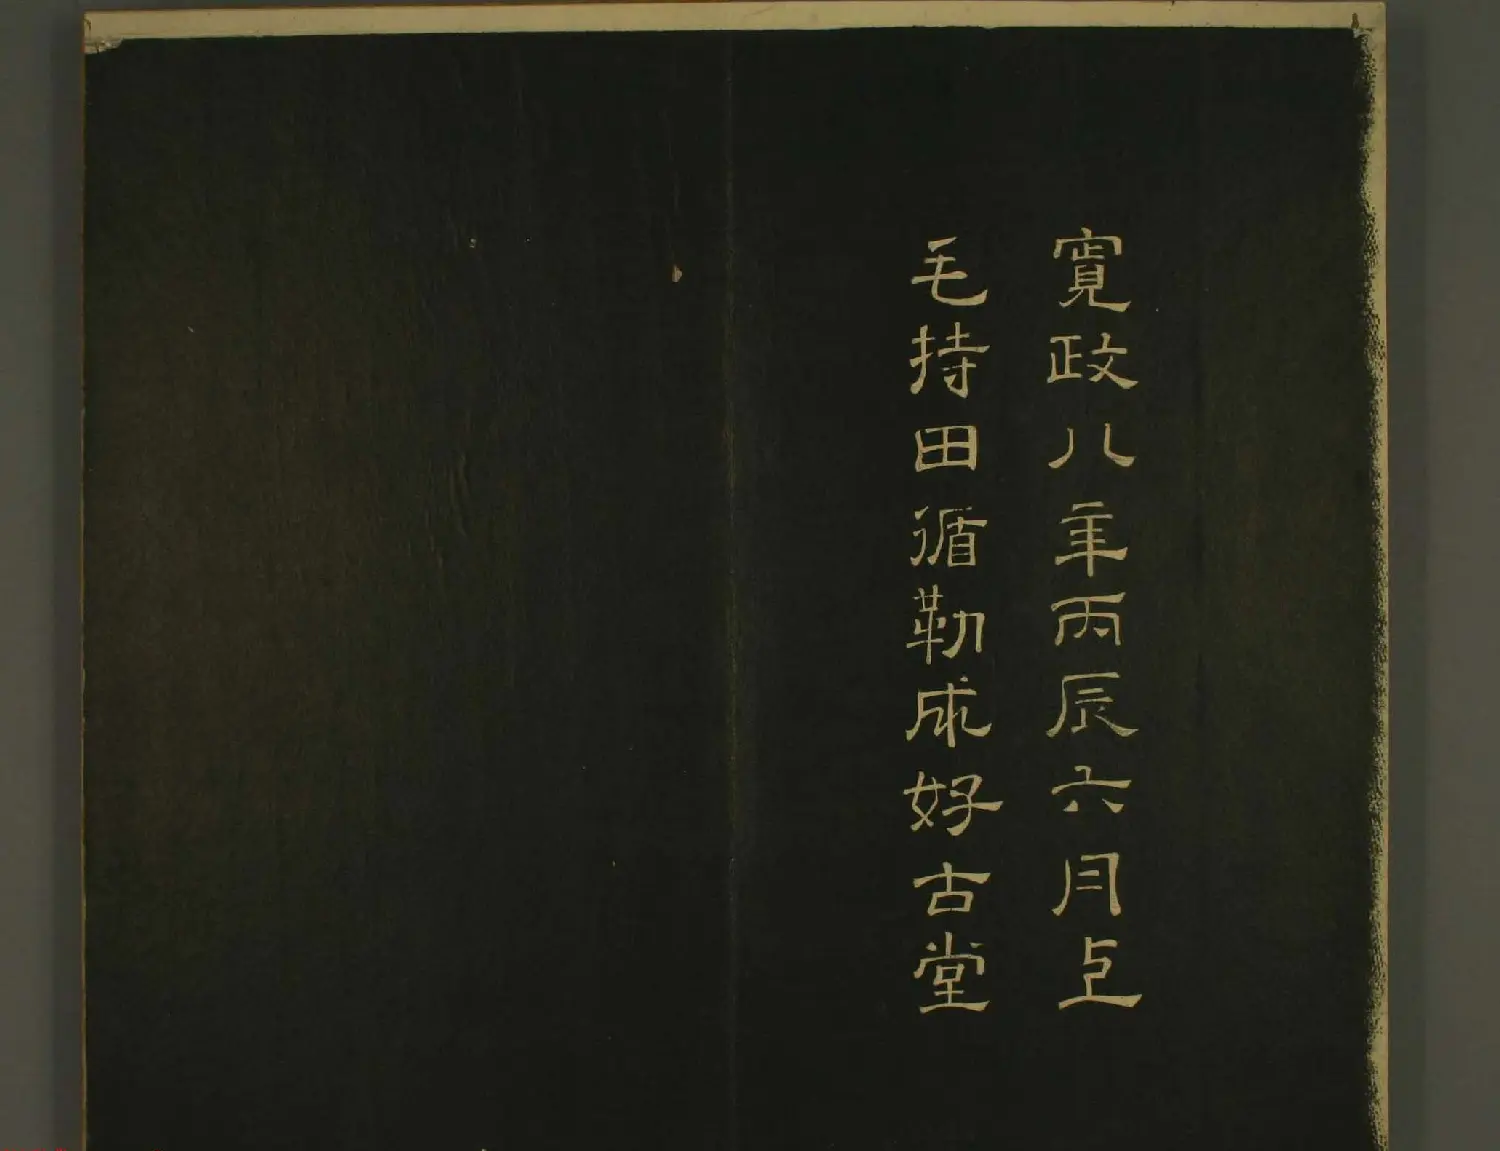 寬政八年丙辰六月上
毛持田循勒成好古堂